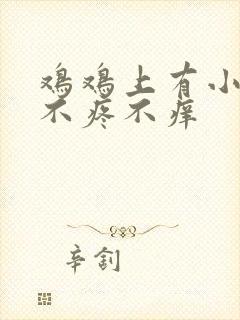 鸡鸡上有小
不疼不痒
辛釗